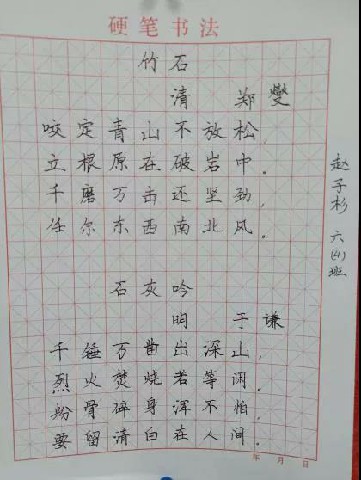 硬笔书法
竹石
清 郑燮
咬定青山不放松，
立根原在破岩中。
千磨万击还坚劲，
任尔东西南北风。
石灰吟
明 于谦
千锤万凿出深山，
烈火焚烧若等闲。
粉骨碎身浑不怕，
要留清白在人间。
年 月 日
赵子杉 六(4)班